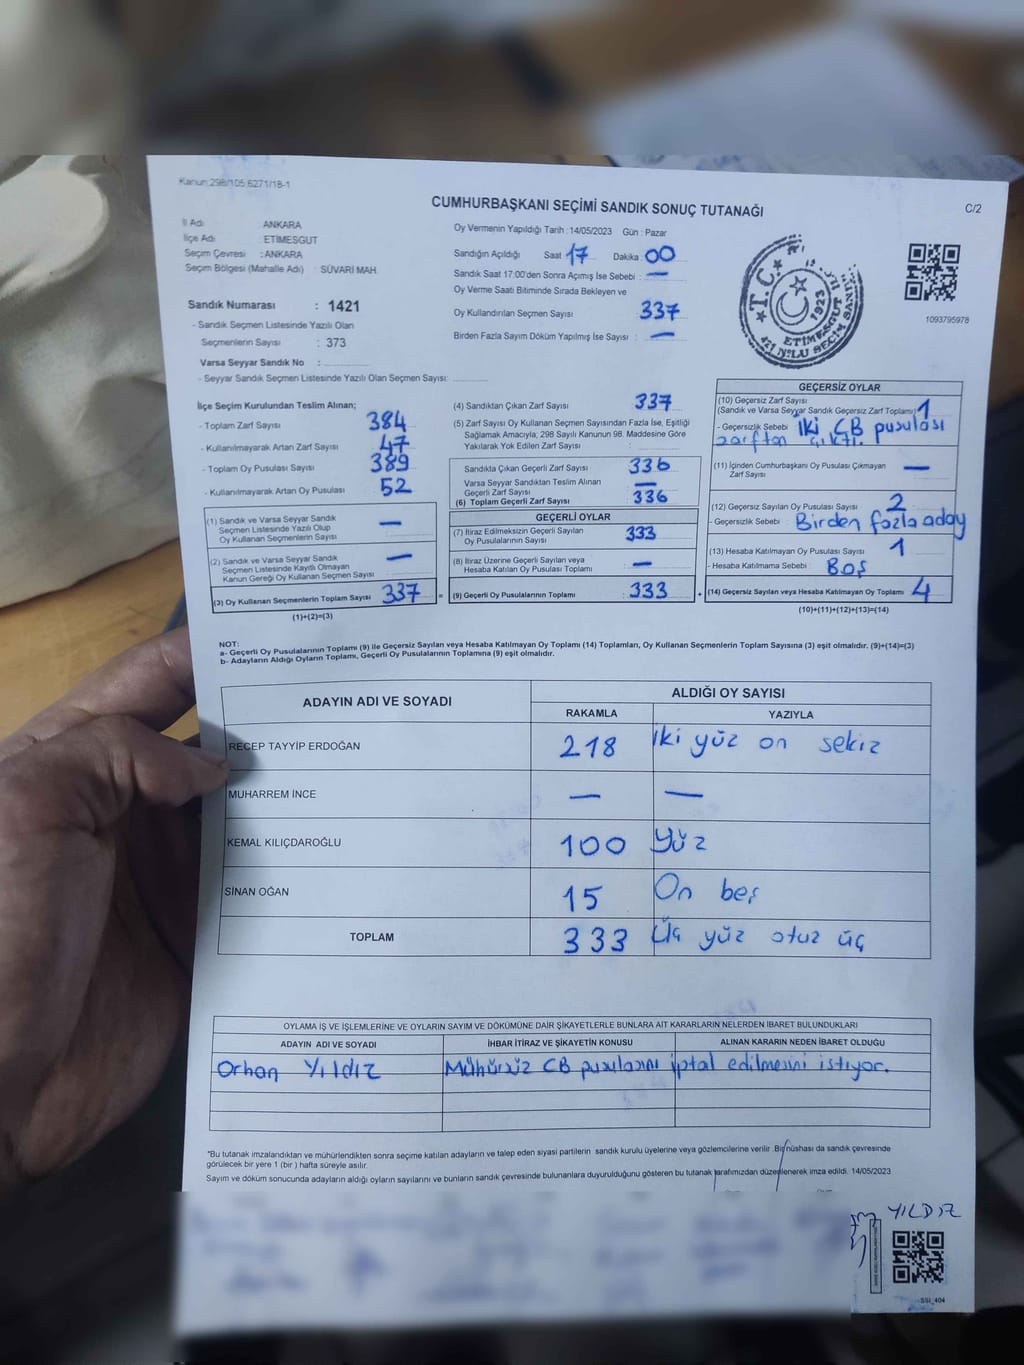 Kanun:298/105,6271/18-1
CUMHURBAŞKANI SEÇİMİ SANDIK SONUÇ TUTANAĞI
C/2
İl Adı : ANKARA
İlçe Adı : ETİMESGUT
Seçim Çevresi : ANKARA
Seçim Bölgesi (Mahalle Adı) : SÜVARİ MAH.
Sandık Numarası : 1421
- Sandık Seçmen Listesinde Yazılı Olan
Seçmenlerin Sayısı : 373
Varsa Seyyar Sandık No :
- Seyyar Sandık Seçmen Listesinde Yazılı Olan Seçmen Sayısı:
Oy Vermenin Yapıldığı Tarih : 14/05/2023 Gün : Pazar
Sandığın Açıldığı Saat 17 Dakika : 00
Sandık Saat 17:00'den Sonra Açımış İse Sebebi : —
Oy Verme Saati Bitiminde Sırada Bekleyen ve
Oy Kullandırılan Seçmen Sayısı 337
Birden Fazla Sayım Döküm Yapılmış İse Sayısı : —
T.C. 1923
ETİMESGUT
421 NOLU SEÇİM SANDIK
1093795978
İlçe Seçim Kurulundan Teslim Alınan;
- Toplam Zarf Sayısı 384
- Kullanılmayarak Artan Zarf Sayısı : 47
- Toplam Oy Pusulası Sayısı : 389
- Kullanılmayarak Artan Oy Pusulası : 52
(1) Sandık ve Varsa Seyyar Sandık
Seçmen Listesinde Yazılı Olup
Oy Kullanan Seçmenlerin Sayısı —
(2) Sandık ve Varsa Seyyar Sandık
Seçmen Listesinde Kayıtlı Olmayan
Kanun Gereği Oy Kullanan Seçmen Sayısı —
(3) Oy Kullanan Seçmenlerin Toplam Sayısı : 337 =
(1)+(2)=(3)
(4) Sandıktan Çıkan Zarf Sayısı 337
(5) Zarf Sayısı Oy Kullanan Seçmen Sayısından Fazla İse, Eşitliği
Sağlamak Amacıyla; 298 Sayılı Kanunun 98. Maddesine Göre
Yakılarak Yok Edilen Zarf Sayısı :
Sandıkta Çıkan Geçerli Zarf Sayısı : 336
Varsa Seyyar Sandıktan Teslim Alınan
Geçerli Zarf Sayısı : —
(6) Toplam Geçerli Zarf Sayısı : 336
GEÇERLİ OYLAR
(7) İtiraz Edilmeksizin Geçerli Sayılan
Oy Pusulalarının Sayısı 333
(8) İtiraz Üzerine Geçerli Sayılan veya
Hesaba Katılan Oy Pusulası Toplamı : —
(9) Geçerli Oy Pusulalarının Toplamı : 333 +
GEÇERSİZ OYLAR
(10) Geçersiz Zarf Sayısı
(Sandık ve Varsa Seyyar Sandık Geçersiz Zarf Toplamı) 1
- Geçersizlik Sebebi : iki CB pusulası
zarftan çıktı.
(11) İçinden Cumhurbaşkanı Oy Pusulası Çıkmayan
Zarf Sayısı —
(12) Geçersiz Sayılan Oy Pusulası Sayısı : 2
- Geçersizlik Sebebi : Birden fazla aday
(13) Hesaba Katılmayan Oy Pusulası Sayısı : 1
- Hesaba Katılmama Sebebi : Boş
(14) Geçersiz Sayılan veya Hesaba Katılmayan Oy Toplamı : 4
(10)+(11)+(12)+(13)=(14)
NOT:
a- Geçerli Oy Pusulalarının Toplamı (9) ile Geçersiz Sayılan veya Hesaba Katılmayan Oy Toplamı (14) Toplamları, Oy Kullanan Seçmenlerin Toplam Sayısına (3) eşit olmalıdır. (9)+(14)=(3)
b- Adayların Aldığı Oyların Toplamı, Geçerli Oy Pusulalarının Toplamına (9) eşit olmalıdır.
ADAYIN ADI VE SOYADI
ALDIĞI OY SAYISI
RAKAMLA YAZIYLA
RECEP TAYYİP ERDOĞAN 218 İki yüz on sekiz
MUHARREM İNCE — —
KEMAL KILIÇDAROĞLU 100 Yüz
SİNAN OĞAN 15 On beş
TOPLAM 333 Üç yüz otuz üç
OYLAMA İŞ VE İŞLEMLERİNE VE OYLARIN SAYIM VE DÖKÜMÜNE DAİR ŞİKAYETLERLE BUNLARA AİT KARARLARIN NELERDEN İBARET BULUNDUKLARI
ADAYIN ADI VE SOYADI İHBAR İTİRAZ VE ŞİKAYETİN KONUSU ALINAN KARARIN NEDEN İBARET OLDUĞU
Orhan Yıldız Mühürsüz CB pusulasını iptal edilmesini istiyor.
"Bu tutanak imzalandıktan ve mühürlendikten sonra seçime katılan adayların ve talep eden siyasi partilerin sandık kurulu üyelerine veya gözlemcilerine verilir. Bir nüshası da sandık çevresinde
görülecek bir yere 1 (bir ) hafta süreyle asılır.
Sayım ve döküm sonucunda adayların aldığı oyların sayılarını ve bunların sandık çevresinde bulunanlara duyurulduğunu gösteren bu tutanak tarafımızdan düzenlenerek imza edildi. 14/05/2023
YILDIZ
SSI_404